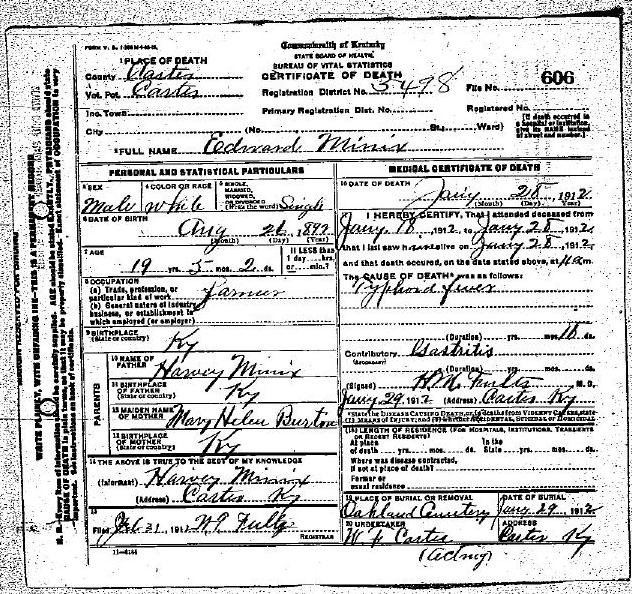 FORM V. S.
Commonwealth of Kentucky
STATE BOARD OF HEALTH
BUREAU OF VITAL STATISTICS
CERTIFICATE OF DEATH
1 PLACE OF DEATH
County Carter
Vot. Pct. Carter
Registration District No. 5498
File No. 606
Inc. Town
Primary Registration Dist. No.
Registered No.
City (No. St., Ward)
[If death occurred in a hospital or institution, give its NAME instead of street and number.]
2 FULL NAME Edward Minix
PERSONAL AND STATISTICAL PARTICULARS
3 SEX
Male
4 COLOR OR RACE
White
5 SINGLE, MARRIED, WIDOWED OR DIVORCED
(Write the word) Single
6 DATE OF BIRTH
Aug 26 1892
(Month) (Day) (Year)
7 AGE
19 yrs. 5 mos. 2 ds.
If LESS than
1 day...hrs.
or...min.?
8 OCCUPATION
(a) Trade, profession, or
particular kind of work Farmer
(b) General nature of industry,
business, or establishment in
which employed (or employer)
9 BIRTHPLACE
(State or country) Ky
PARENTS
10 NAME OF
FATHER Harvey Minix
11 BIRTHPLACE
OF FATHER
(State or country) Ky
12 MAIDEN NAME
OF MOTHER Mary Helen Burton
13 BIRTHPLACE
OF MOTHER
(State or country) Ky
14 THE ABOVE IS TRUE TO THE BEST OF MY KNOWLEDGE
(Informant) Harvey Minix
(Address) Carter Ky
15
Filed 31, 191
REGISTRAR
MEDICAL CERTIFICATE OF DEATH
16 DATE OF DEATH
Jany 28, 1912
(Month) (Day) (Year)
17 I HEREBY CERTIFY, That I attended deceased from
Jany 18, 1912, to Jany 28, 1912,
that I last saw him alive on Jany 28, 1912,
and that death occured, on the date stated above, at 4 a m.
The CAUSE OF DEATH was as follows:
Typhoid fever
(Duration) yrs. mos. 18 ds.
Contributory Gastritis
(Duration) yrs. mos. ds.
(Signed) M. D.
Jany 29, 1912 (Address) Carter Ky
State the DISEASE CAUSING DEATH, or, in deaths from VIOLENT CAUSES, state
(1) MEANS OF INJURY; and (2) whether ACCIDENTAL, SUICIDAL or HOMICIDAL
18 LENGTH OF RESIDENCE (FOR HOSPITALS, INSTITUTIONS, TRANSIENTS
OR RECENT RESIDENTS)
At place In the
of death yrs. mos. ds. State yrs. mos. ds.
Where was disease contracted,
if not at place of death?
Former or
usual residence
19 PLACE OF BURIAL OR REMOVAL
Oakland Cemetery
DATE OF BURIAL
Jany 29, 1912
20 UNDERTAKER
Carter
(Acting)
ADDRESS
Carter Ky